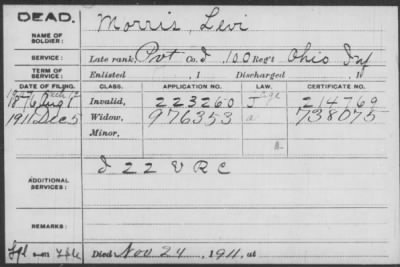 DEAD.
NAME OF SOLDIER:
Morris, Levi
SERVICE:
Late rank, Pvt Co. I, 100 Reg't Ohio Inf
TERM OF SERVICE:
Enlisted , 1 Discharged , 1
DATE OF FILING. CLASS. APPLICATION NO. LAW. CERTIFICATE NO.
1876 Aug 1 Invalid, 223260 J 214769
1911 Dec 5 Widow, 976353 a 738075
Minor,
ADDITIONAL SERVICES:
I 22 V R C
REMARKS:
Died Nov 24, 1911, at